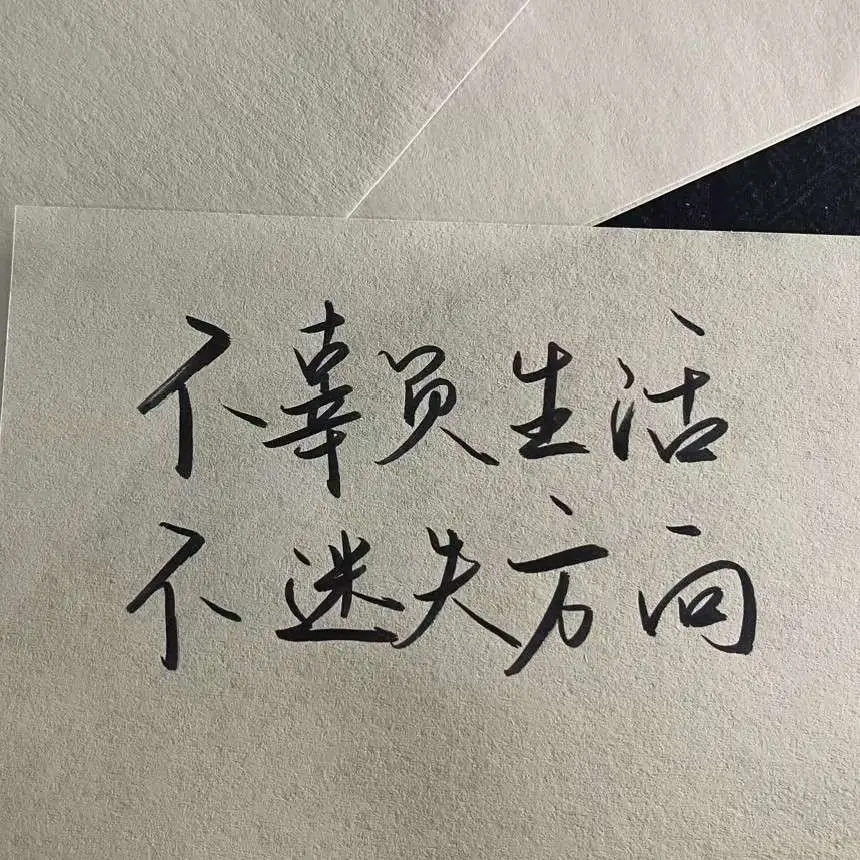 不辜负生活
不迷失方向